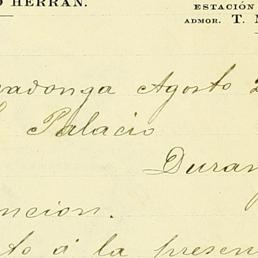 O HERRAN.
ESTACIÓN
ADMOR. T. M
vadonga Agosto 2
Palacio
Duran
ncion.
to á la presen